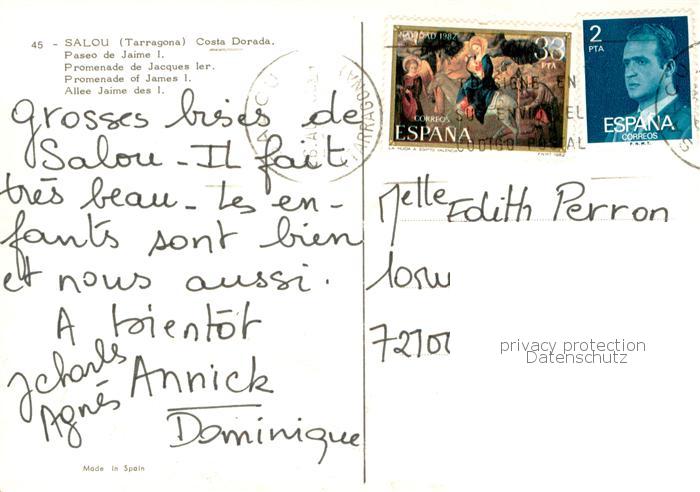 45 - SALOU (Tarragona) Costa Dorada.
Paseo de Jaime I.
Promenade de Jacques Ier.
Promenade of James I.
Allee Jaime des I.
NAVIDAD 1982
33
PTA
CORREOS
ESPAÑA
2
PTA
ESPAÑA
CORREOS
F.N.M.T.
SALOU
TARRAGONA
CODIGO POSTAL
Grosses bises de
Salou - Il fait
très beau - Les en-
fants sont bien
et nous aussi.
A bientôt
Jcharles
Annick
Agnès
Dominique
Melle Edith Perron
privacy protection
Datenschutz
Made in Spain